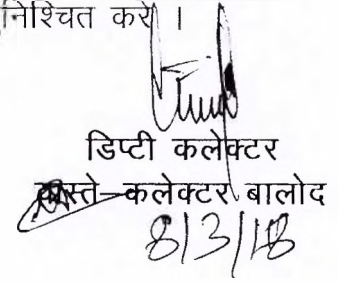 निश्चित करें।
डिप्टी कलेक्टर
वास्ते–कलेक्टर बालोद
8/3/18